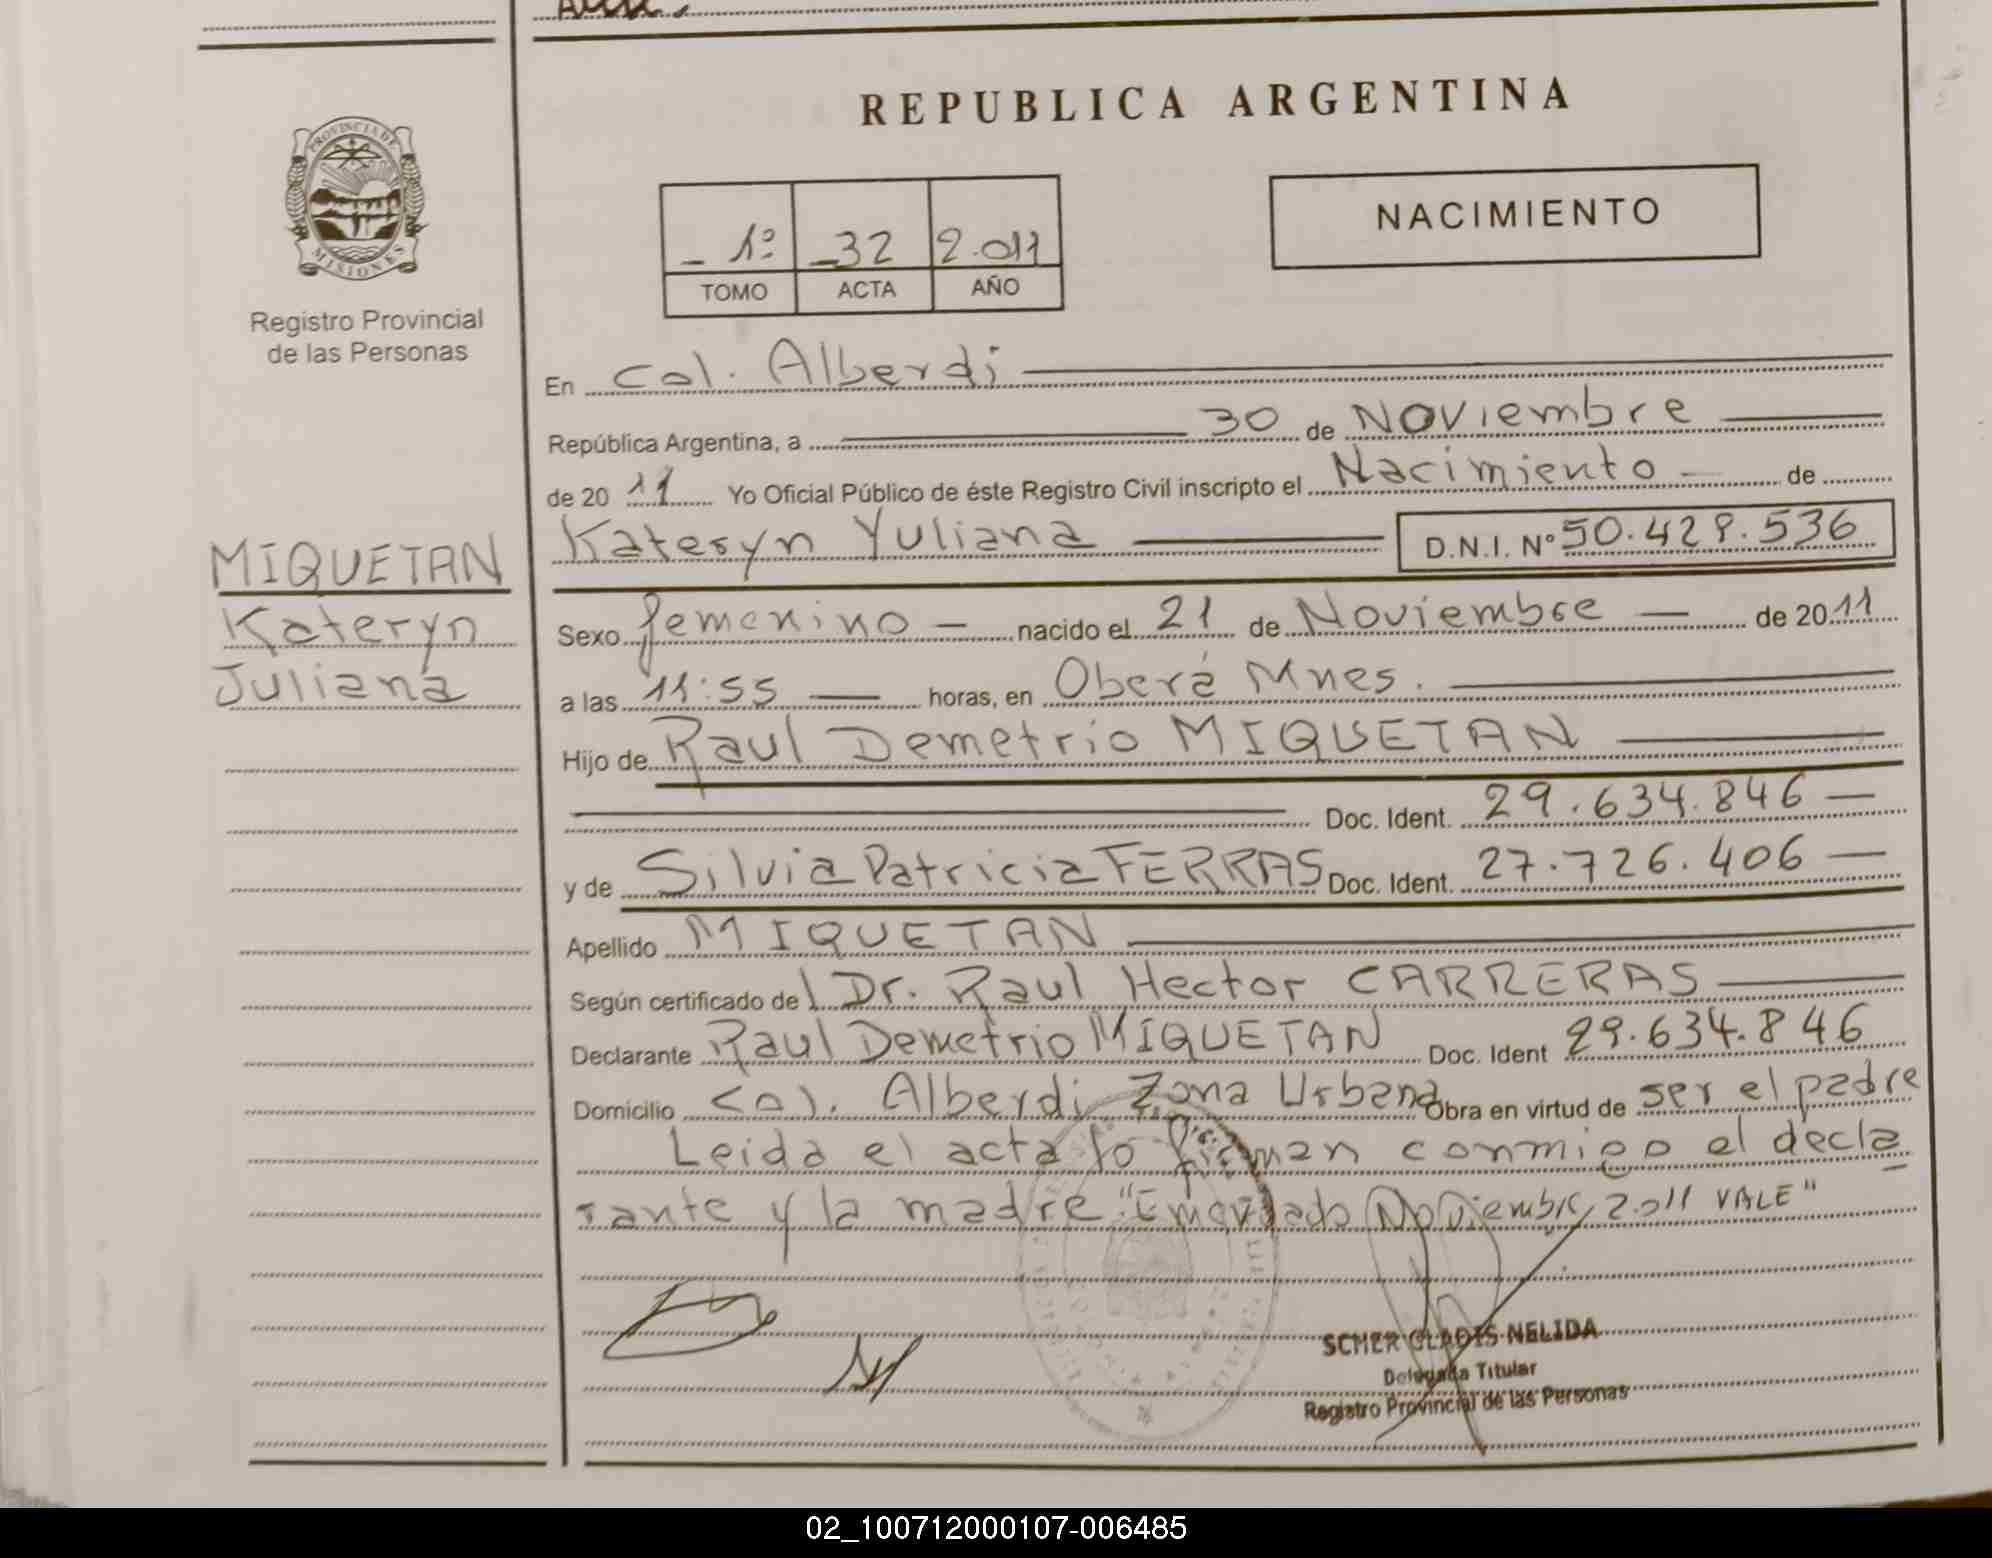 REPUBLICA ARGENTINA
PROVINCIA DE
MISIONES
Registro Provincial
de las Personas
NACIMIENTO
1º 32 2.011
TOMO ACTA AÑO
En Col. Alberdi
República Argentina, a 30 de Noviembre
de 20 11 Yo Oficial Público de éste Registro Civil inscripto el Nacimiento de
Kateryn Yuliana D.N.I. Nº 50.429.536
MIQUETAN
Kateryn
Juliana
Sexo femenino nacido el 21 de Noviembre de 20 11
a las 11:55 horas, en Oberá Mnes.
Hijo de Raul Demetrio MIQUETAN
Doc. Ident. 29.634.846
y de Silvia Patricia FERRAS Doc. Ident. 27.726.406
Apellido MIQUETAN
Según certificado de l Dr. Raul Hector CARRERAS
Declarante Raul Demetrio MIQUETAN Doc. Ident 29.634.846
Domicilio Col. Alberdi Zona Urbana Obra en virtud de ser el padre
Leida el acta lo firman conmigo el decla
rante y la madre "Enmendado Noviembre, 2.011 VALE"
SCHER GLADIS NELIDA
Delegada Titular
Registro Provincial de las Personas
02_100712000107-006485